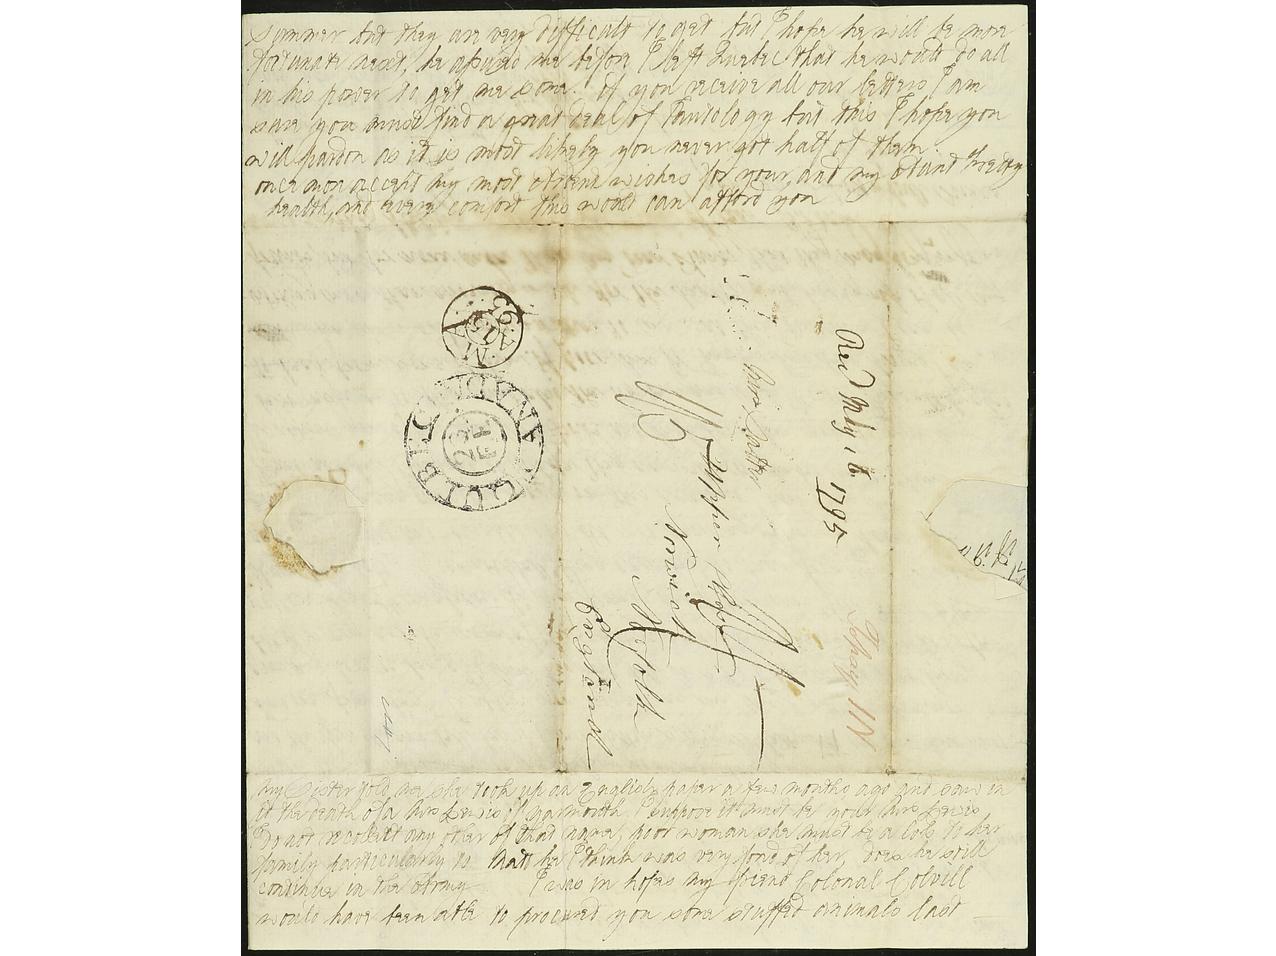 Summer but they are very difficult to get but I hope he will be more
fortunate next, he assured me before I left Quebec that he would do all
in his power to get me some. if you receive all our letters I am
sure you must find a great deal of Tautology but this I hope you
will pardon as it is most likely you never got half of them
once more accept my most sincere wishes for your, and my
health, and every comfort this world can afford you
MA
15
93
QUEBEC CANADA
23
FE
Recd May 16 1795
Miss
Upper
Norwich
Norfolk
England
My Sister told me she took up an English paper a few months ago and saw in
it the death of a Mrs Lewis of Yarmouth I suppose it must be your Mrs Lewis
I do not recollect any other of that name, poor woman she must be a loss to her
family particularly to Matt he I think was very fond of her, does he still
continue in the Army I was in hopes my friend Colonal Colvill
would have been able to procured you some stuffed animals last